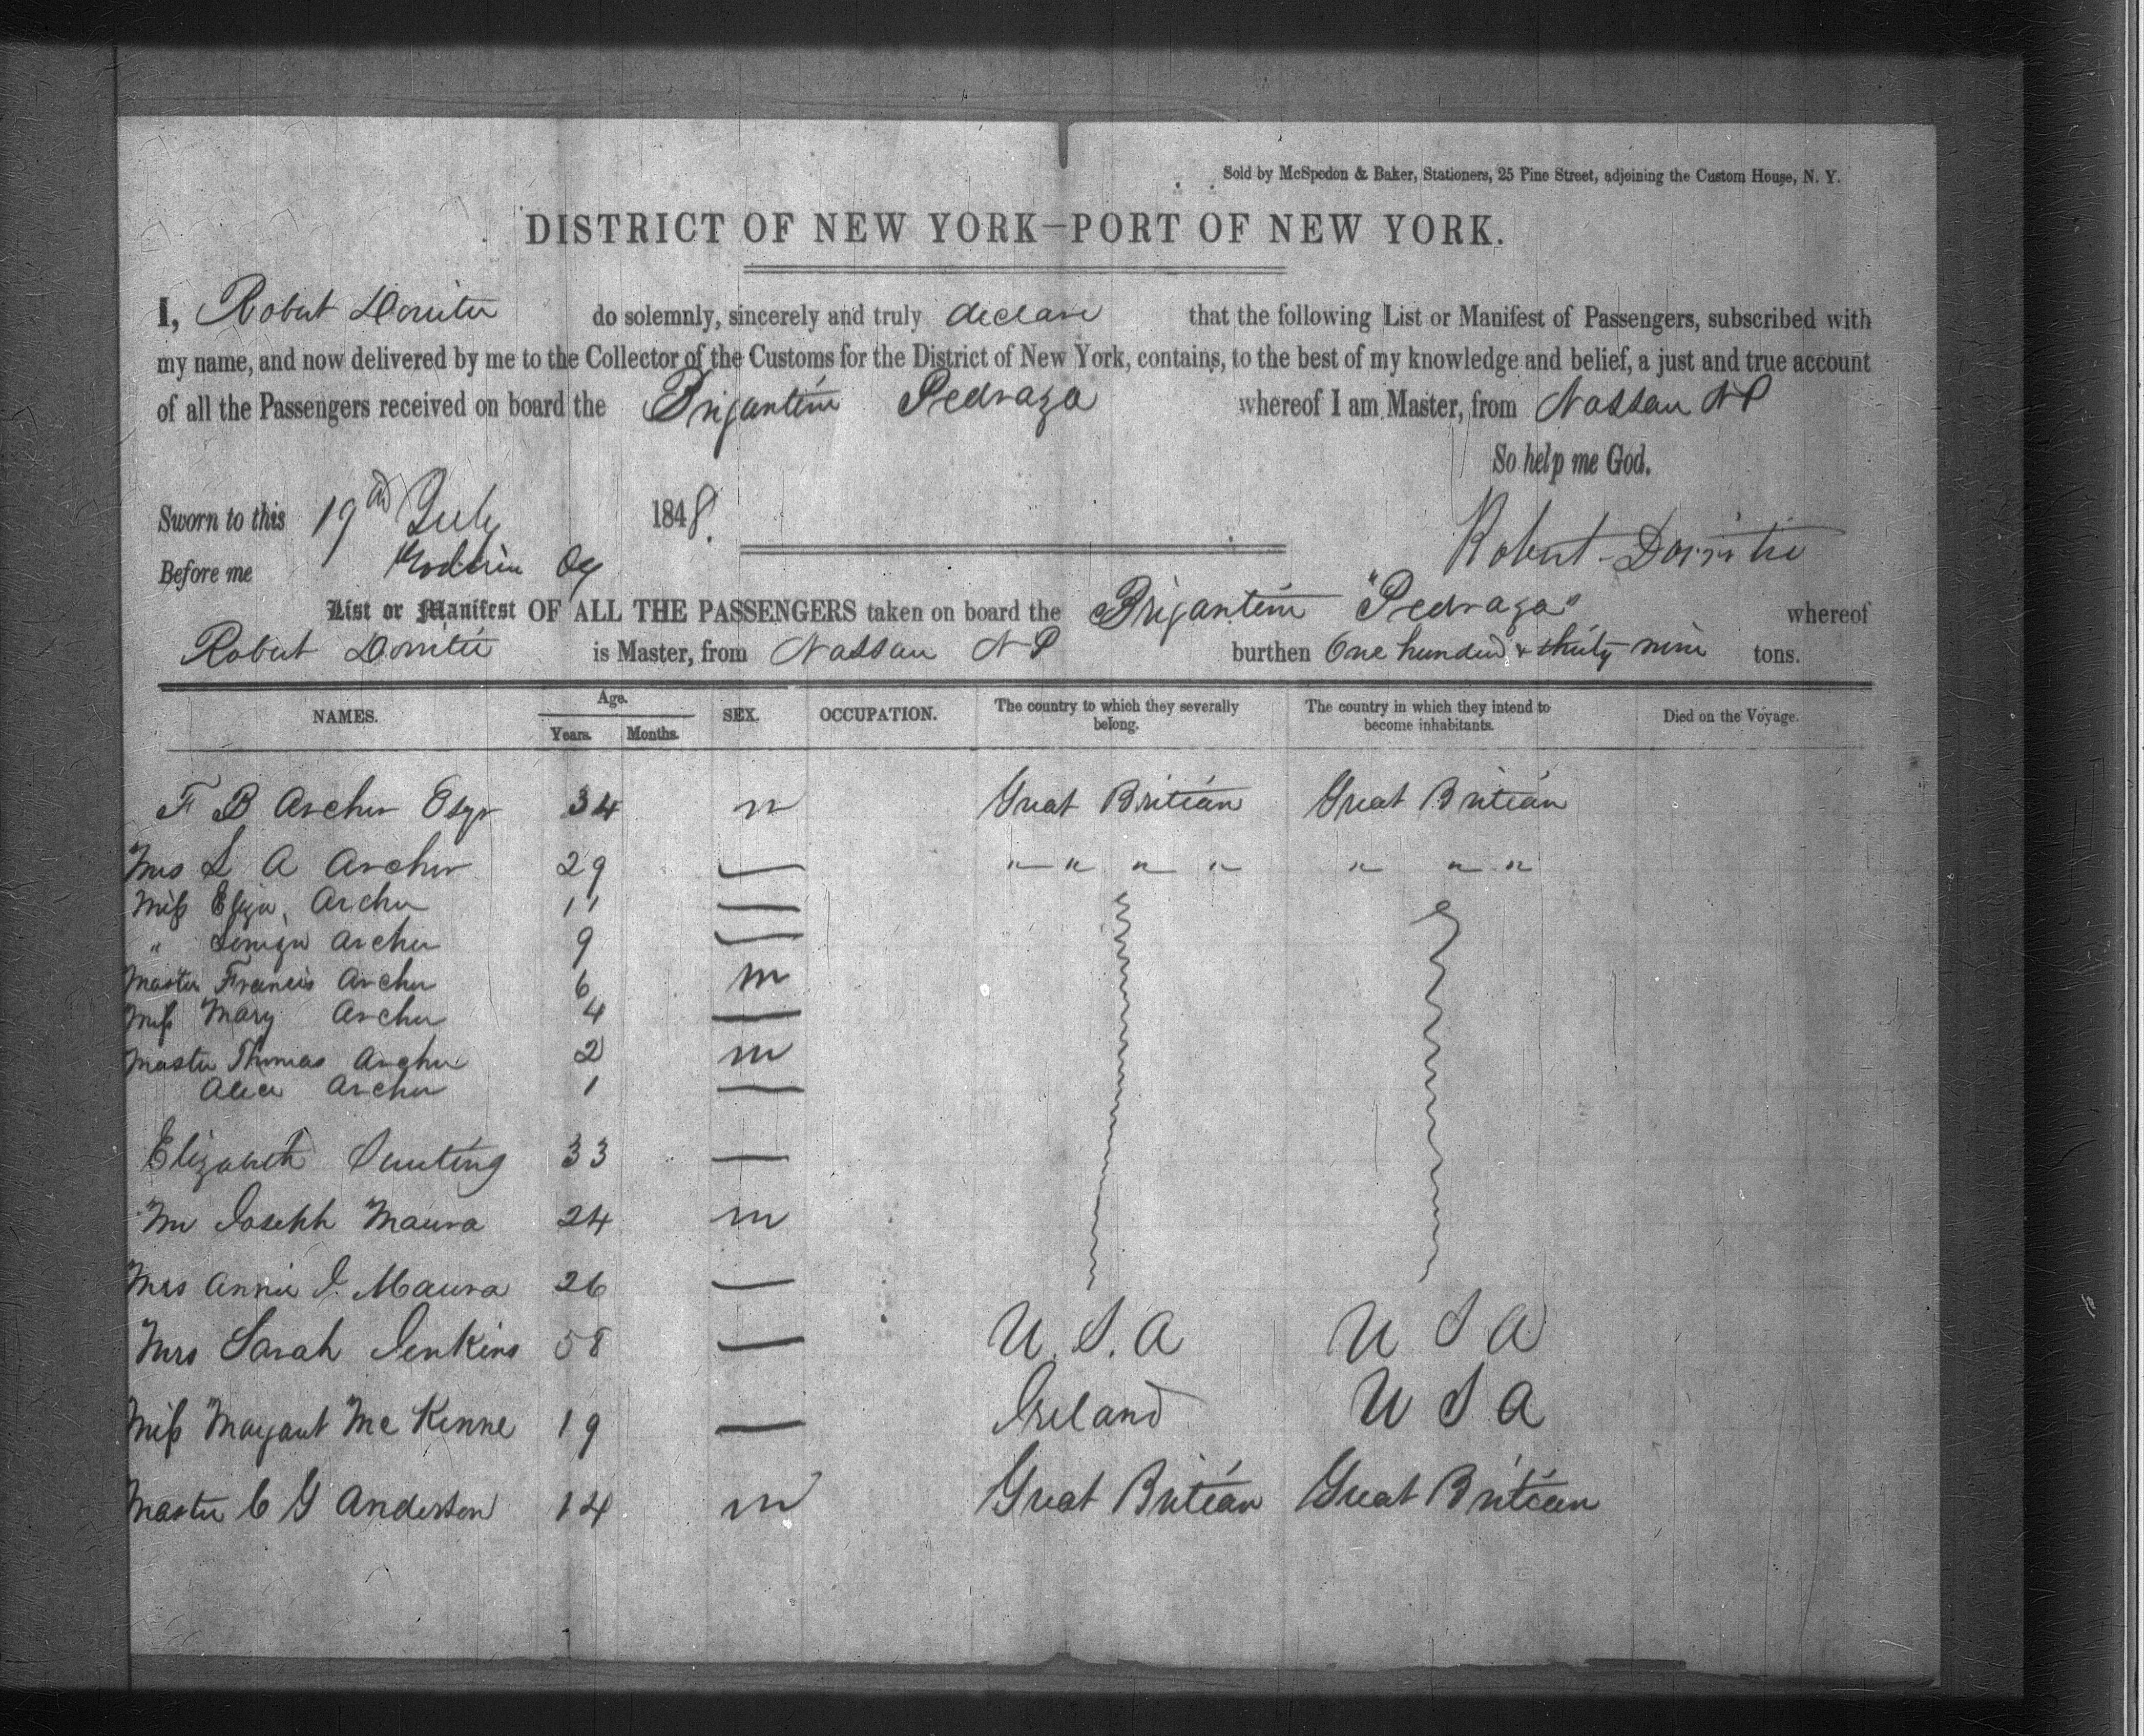 Sold by McSpedon & Baker, Stationers, 25 Pine Street, adjoining the Custom House, N. Y.
DISTRICT OF NEW YORK—PORT OF NEW YORK.
I, Robert do solemnly, sincerely and truly declare that the following List or Manifest of Passengers, subscribed with
my name, and now delivered by me to the Collector of the Customs for the District of New York, contains, to the best of my knowledge and belief, a just and true account
of all the Passengers received on board the Brigantine Pedraza whereof I am Master, from Nassau N P
So help me God.
Sworn to this 19th July 1848.
Robert
Before me
List or Manifest OF ALL THE PASSENGERS taken on board the Brigantine "Pedraza" whereof
Robert is Master, from Nassau N P burthen One hundred & thirty nine tons.
NAMES. Age. Years. Months. SEX. OCCUPATION. The country to which they severally belong. The country in which they intend to become inhabitants. Died on the Voyage.
F B Archer Esqr 34 m Great Britian Great Britian
Mrs L A Archer 29 — " " " " " " "
Miss Eliza Archer 11 —
" Archer 9 —
Master Francis Archer 6 m
Miss Mary Archer 4 —
Master Thomas Archer 2 m
Alice Archer 1 —
Elizabeth 33 —
Mr Joseph Maura 24 m
Mrs Annie J. Maura 26 —
Mrs Sarah Jenkins 58 — U. S. A U S A
Miss Margaret McKenne 19 — Ireland U S A
Master C G Anderson 14 m Great Britian Great Britian